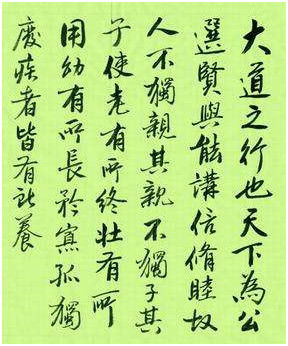 大道之行也天下為公
選賢與能講信脩睦故
人不獨親其親不獨子其
子使老有所終壯有所
用幼有所長矜寡孤獨
廢疾者皆有所養